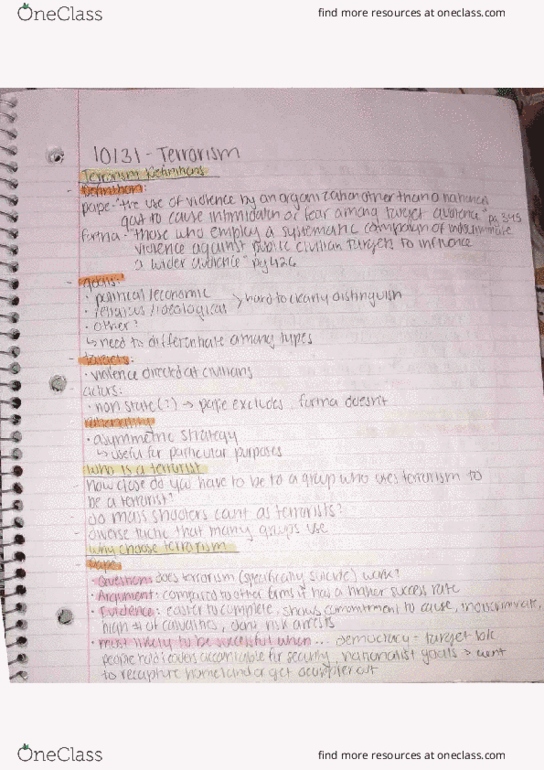 OneClass
find more resources at oneclass.com
10/31 - Terrorism
Terrorism Definitions
- Definition:
pape - "the use of violence by an organization other than a national
govt to cause intimidation or fear among target audience" pg 345
fortna - "those who employ a systematic campaign of indiscriminate
violence against public civilian targets to influence
a wider audience" pg 426
- goals:
• political/economic
• religious/ideological > hard to clearly distinguish
• other?
↳ need to differentiate among types
- targets:
• violence directed at civilians
- actors:
• non state(?) → pape excludes fortna doesn't
• asymmetric strategy
↳ useful for particular purposes
who is a terrorist
- how close do you have to be to a group who uses terrorism to
be a terrorist?
- do mass shooters count as terrorists?
- diverse tactic that many groups use
why choose terrorism
- Pape
• Question: does terrorism (specifically suicide) work?
• Argument: compared to other forms it has a higher success rate
• Evidence: easier to complete, shows commitment to cause, indiscriminate,
high # of casualties, deny risk arrests
• most likely to be successful when... democracy - target bc
people hold leaders accountable for security, nationalist goals > want
to recapture homeland or get occupier out
OneClass
find more resources at oneclass.com